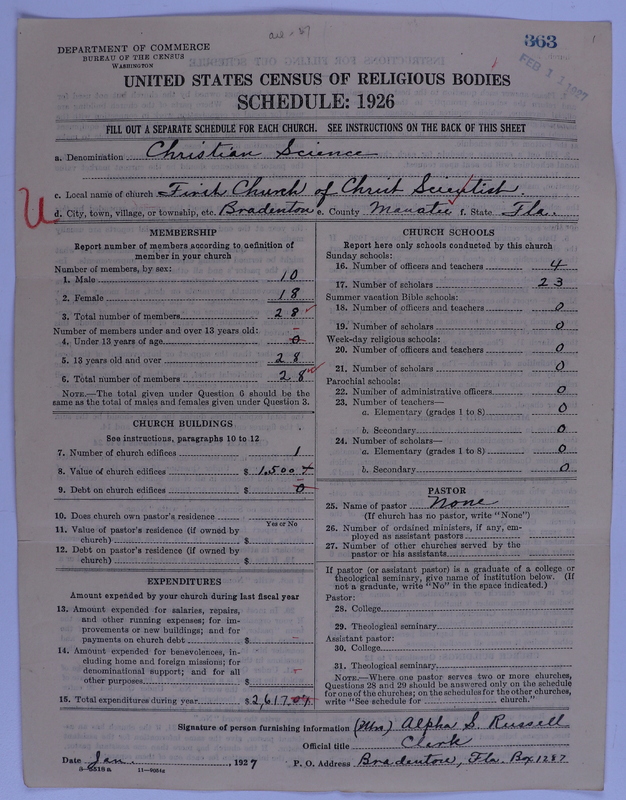 363
FEB 11 1927
DEPARTMENT OF COMMERCE
BUREAU OF THE CENSUS
WASHINGTON
UNITED STATES CENSUS OF RELIGIOUS BODIES
SCHEDULE: 1926
FILL OUT A SEPARATE SCHEDULE FOR EACH CHURCH. SEE INSTRUCTIONS ON THE BACK OF THIS SHEET
a. Denomination Christian Science
c. Local name of church First Church of Christ Scientist.
d. City, town, village, or township, etc. Bradenton e. County Manatee f. State Fla.
MEMBERSHIP
Report number of members according to definition of
member in your church
Number of members, by sex:
1. Male 10
2. Female 18
3. Total number of members 28
Number of members under and over 13 years old:
4. Under 13 years of age 0
5. 13 years old and over 28
6. Total number of members 28
NOTE.—The total given under Question 6 should be the
same as the total of males and females given under Question 3.
CHURCH BUILDINGS
See instructions, paragraphs 10 to 12
7. Number of church edifices 1
8. Value of church edifices $ 1,500
9. Debt on church edifices $ 0
10. Does church own pastor's residence
Yes or No
11. Value of pastor's residence (if owned by
church) $
12. Debt on pastor's residence (if owned by
church) $
EXPENDITURES
Amount expended by your church during last fiscal year
13. Amount expended for salaries, repairs,
and other running expenses; for im-
provements or new buildings; and for
payments on church debt $
14. Amount expended for benevolences, in-
cluding home and foreign missions; for
denominational support; and for all
other purposes $
15. Total expenditures during year $ 2,617.
CHURCH SCHOOLS
Report here only schools conducted by this church
Sunday schools:
16. Number of officers and teachers 4
17. Number of scholars 23
Summer vacation Bible schools:
18. Number of officers and teachers 0
19. Number of scholars 0
Week-day religious schools:
20. Number of officers and teachers 0
21. Number of scholars 0
Parochial schools:
22. Number of administrative officers 0
23. Number of teachers—
a. Elementary (grades 1 to 8) 0
b. Secondary 0
24. Number of scholars—
a. Elementary (grades 1 to 8) 0
b. Secondary 0
PASTOR
25. Name of pastor None
(If church has no pastor, write "None")
26. Number of ordained ministers, if any, em-
ployed as assistant pastors
27. Number of other churches served by the
pastor or his assistants
If pastor (or assistant pastor) is a graduate of a college or
theological seminary, give name of institution below. (If
not a graduate, write "No" in the space indicated.)
Pastor:
28. College
29. Theological seminary
Assistant pastor:
30. College
31. Theological seminary
NOTE.—Where one pastor serves two or more churches,
Questions 28 and 29 should be answered only on the schedule
for one of the churches; on the schedules for the other churches,
write "See schedule for church."
Signature of person furnishing information (Mrs) Alpha S. Russell
Official title Clerk
Date Jan. , 1927 P. O. Address Bradenton, Fla. Box 1287
8-5518a 11-9054a